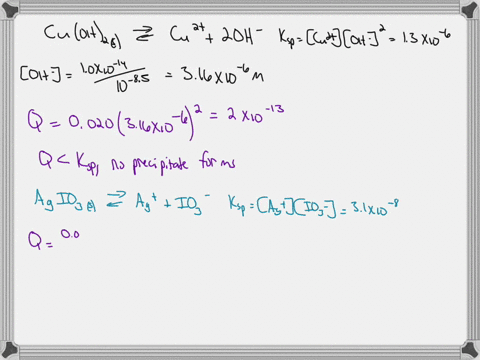 Cu(OH)₂(s) ⇌ Cu²⁺ + 2OH⁻ Ksp = [Cu²⁺][OH⁻]² = 1.3 x 10⁻⁶
[OH⁻] = 1.0x10⁻¹⁴ / 10⁻⁸·⁵ = 3.16 x 10⁻⁶ M
Q = 0.020 (3.16 x 10⁻⁶)² = 2 x 10⁻¹³
Q < Ksp, no precipitate forms
AgIO₃(s) ⇌ Ag⁺ + IO₃⁻ Ksp = [Ag⁺][IO₃⁻] = 3.1 x 10⁻⁸
Q = 0.0